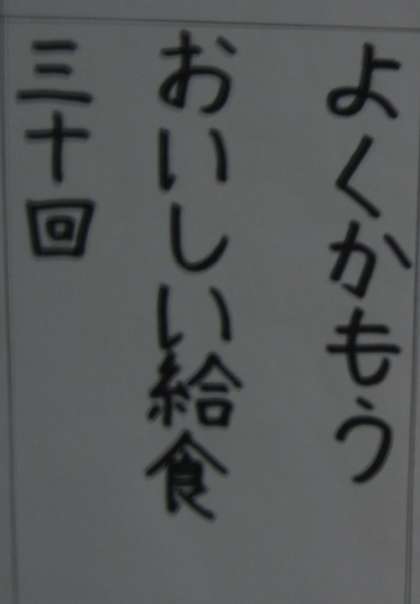 よくかもう
おいしい給食
三十回